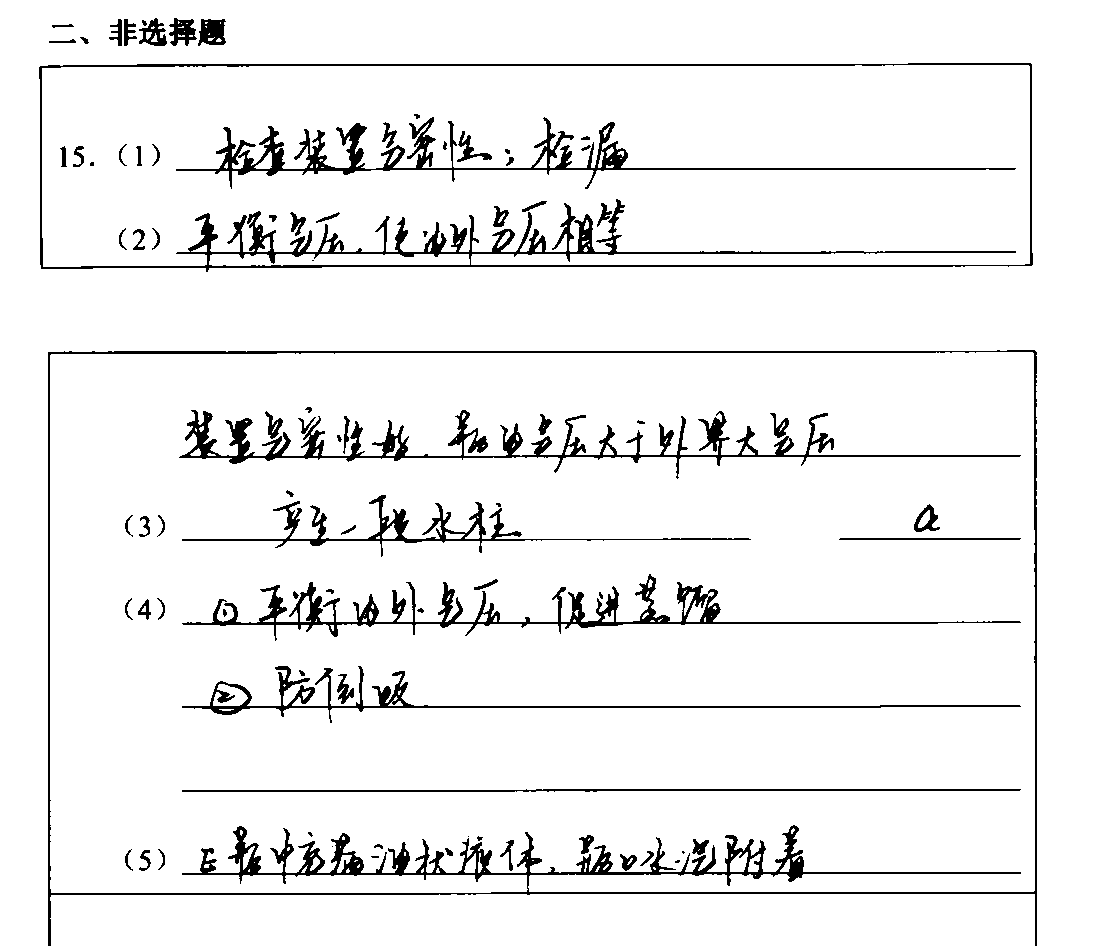 二、非选择题
15.（1） 检查装置气密性；检漏
（2） 平衡气压，使内外气压相等
装置气密性好，瓶内气压大于外界大气压
（3） 产生一段水柱 a
（4） ①平衡内外气压，促进蒸馏
②防倒吸
（5） E瓶中充满油状液体，瓶口水泡附着